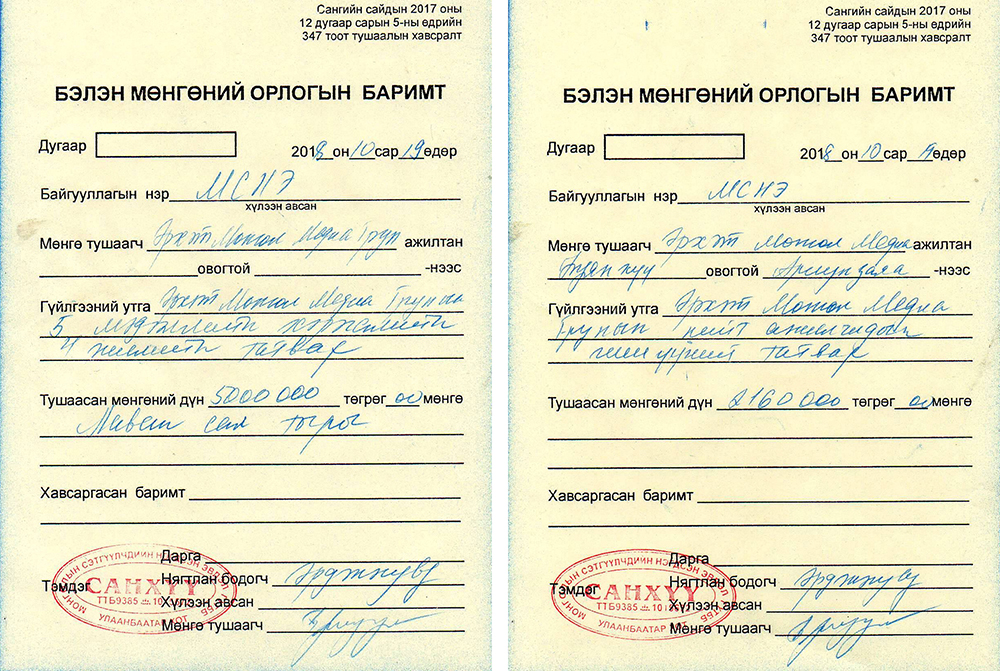 Сангийн сайдын 2017 оны
12 дугаар сарын 5-ны өдрийн
347 тоот тушаалын хавсралт
БЭЛЭН МӨНГӨНИЙ ОРЛОГЫН БАРИМТ
Дугаар
2018 он 10 сар 19 өдөр
Байгууллагын нэр МСНЭ
хүлээн авсан
Мөнгө тушаагч Эрхэт Монгол Медиа Групп ажилтан
овогтой -нээс
Гүйлгээний утга Эрхэт Монгол Медиа Группын
5
4 татвар
Тушаасан мөнгөний дүн 5000000 төгрөг 00 мөнгө
сая төгрөг
Хавсаргасан баримт
Дарга
Тэмдэг Нягтлан бодогч
Хүлээн авсан
Мөнгө тушаагч
МОНГОЛЫН СЭТГҮҮЛЧДИЙН НЭГДСЭН ЭВЛЭЛ ТББ
САНХҮҮ
УЛААНБААТАР ХОТ
Сангийн сайдын 2017 оны
12 дугаар сарын 5-ны өдрийн
347 тоот тушаалын хавсралт
БЭЛЭН МӨНГӨНИЙ ОРЛОГЫН БАРИМТ
Дугаар
2018 он 10 сар 19 өдөр
Байгууллагын нэр МСНЭ
хүлээн авсан
Мөнгө тушаагч Эрхэт Монгол Медиа ажилтан
овогтой -нээс
Гүйлгээний утга Эрхэт Монгол Медиа
Группын нийт ажилчдын
гишүүний татвар
Тушаасан мөнгөний дүн 2160000 төгрөг 00 мөнгө
Хавсаргасан баримт
Дарга
Тэмдэг Нягтлан бодогч
Хүлээн авсан
Мөнгө тушаагч
МОНГОЛЫН СЭТГҮҮЛЧДИЙН НЭГДСЭН ЭВЛЭЛ ТББ
САНХҮҮ
УЛААНБААТАР ХОТ